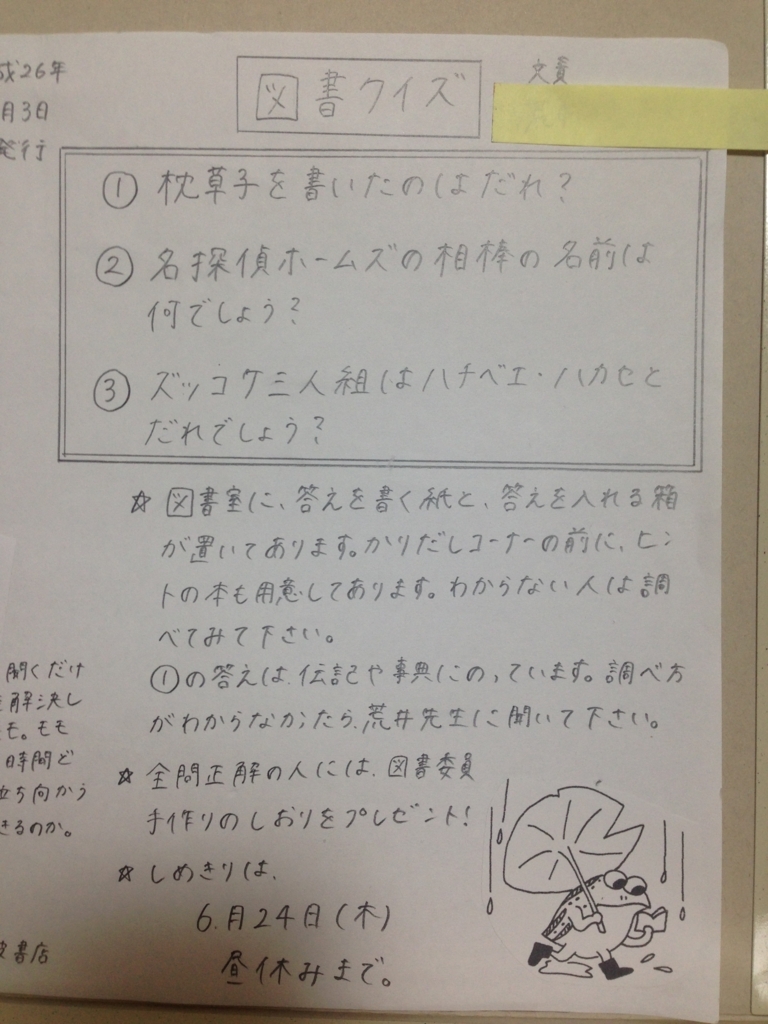 成26年
月3日
発行
図書クイズ
文責
① 枕草子を書いたのはだれ?
② 名探偵ホームズの相棒の名前は
何でしょう?
③ ズッコケ三人組はハチベエ・ハカセと
だれでしょう?
☆ 図書室に、答えを書く紙と、答えを入れる箱
が置いてあります。かりだしコーナーの前に、ヒン
トの本も用意してあります。わからない人は調
べてみて下さい。
①の答えは、伝記や事典にのっています。調べ方
がわからなかったら、荒井先生に聞いて下さい。
☆ 全問正解の人には、図書委員
手作りのしおりをプレゼント!
☆ しめきりは、
6.月24日(木)
昼休みまで。
聞くだけ
解決し
モ。モモ
時間ど
立ち向かう
きるのか。
書店